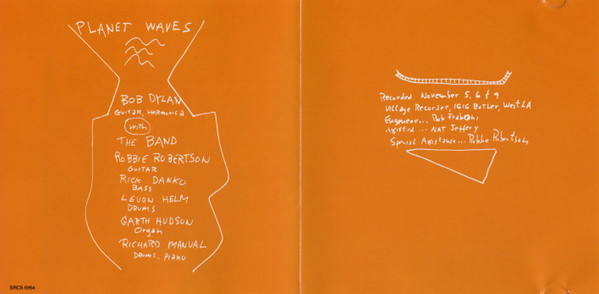 PLANET WAVES
BOB DYLAN
GUITAR, HARMONICA
with
THE BAND
ROBBIE ROBERTSON
GUITAR
RICK DANKO
BASS
LEVON HELM
DRUMS
GARTH HUDSON
Organ
RICHARD MANUAL
DRUMS, PIANO
SRCS 6164
Recorded November 5, 6 & 9
Village Recorder, 1616 Butler, West LA
Engineer... Rob Fraboni
Assisted... NAT Jeffery
Special Assistance... Robbie Robertson